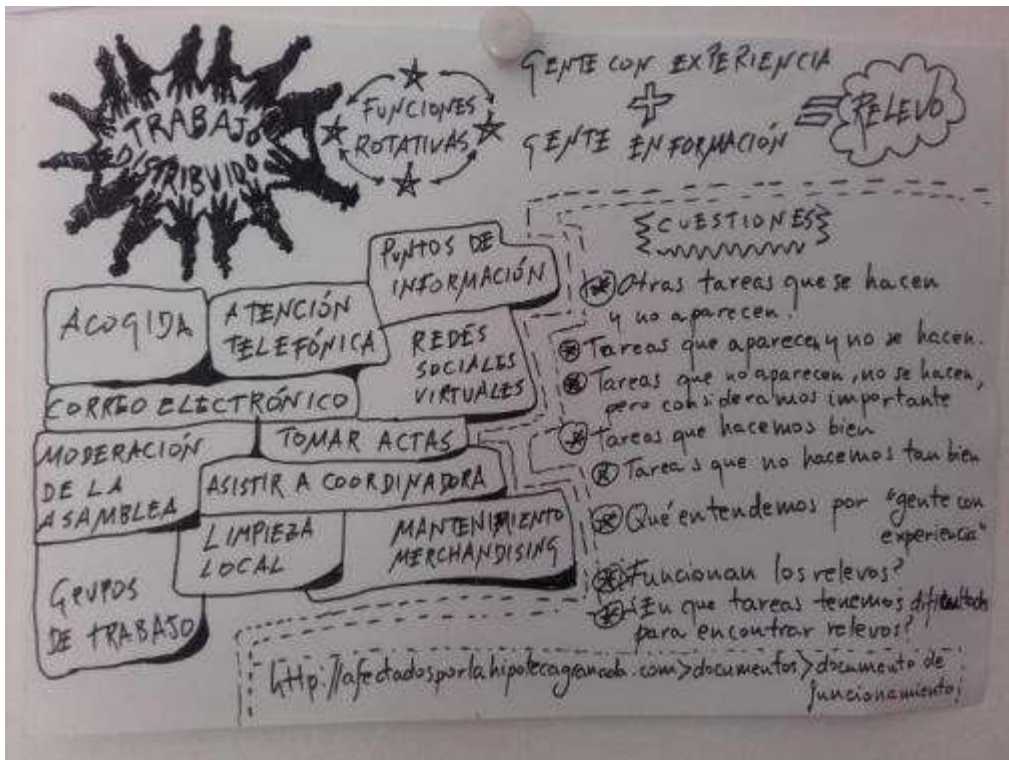 TRABAJO
DISTRIBUIDO
FUNCIONES
ROTATIVAS
GENTE CON EXPERIENCIA
+
GENTE EN FORMACIÓN
=
RELEVO
PUNTOS DE
INFORMACIÓN
ACOGIDA
ATENCIÓN
TELEFÓNICA
REDES
SOCIALES
VIRTUALES
CORREO ELECTRÓNICO
MODERACIÓN
DE LA
ASAMBLEA
TOMAR ACTAS
ASISTIR A COORDINADORA
LIMPIEZA
LOCAL
MANTENIMIENTO
MERCHANDISING
GRUPOS
DE TRABAJO
CUESTIONES
Otras tareas que se hacen
y no aparecen.
Tareas que aparecen y no se hacen.
Tareas que no aparecen, no se hacen,
pero consideramos importante
Tareas que hacemos bien
Tareas que no hacemos tan bien
Qué entendemos por "gente con
experiencia"
¿Funcionan los relevos?
¿En que tareas tenemos
para encontrar relevos?
http://afectadosporlahipotecagranada.com>documentos>documento de
funcionamiento